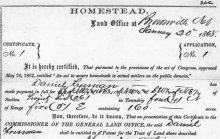 HOMESTEAD.
Land Office at Brownville Neb
January 20th 1868.
CERTIFICATE,
No. 1
APPLICATION,
No. 1
It is hereby certified, That pursuant to the provisions of the act of Congress, approved
May 20, 1862, entitled "An act to secure homesteads to actual settlers on the public domain,"
Daniel Freeman has
made payment in full for
Section
in Township four (4)
five (5) E containing 160 acres.
Now, therefore, be it known, That on presentation of this Certificate to the
COMMISSIONER OF THE GENERAL LAND OFFICE, the said Daniel
Freeman shall be entitled to a Patent for the Tract of Land above described.